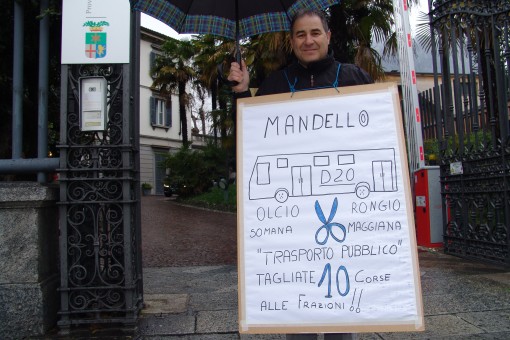 MANDELLO
D20
OLCIO RONGIO
SOMANA MAGGIANA
"TRASPORTO PUBBLICO"
TAGLIATE 10 CORSE
ALLE FRAZIONI!!